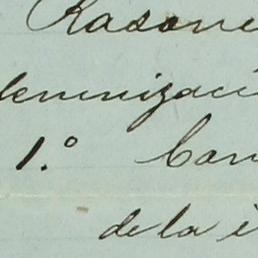 Razone
demnizaci
1.º Can
de la i